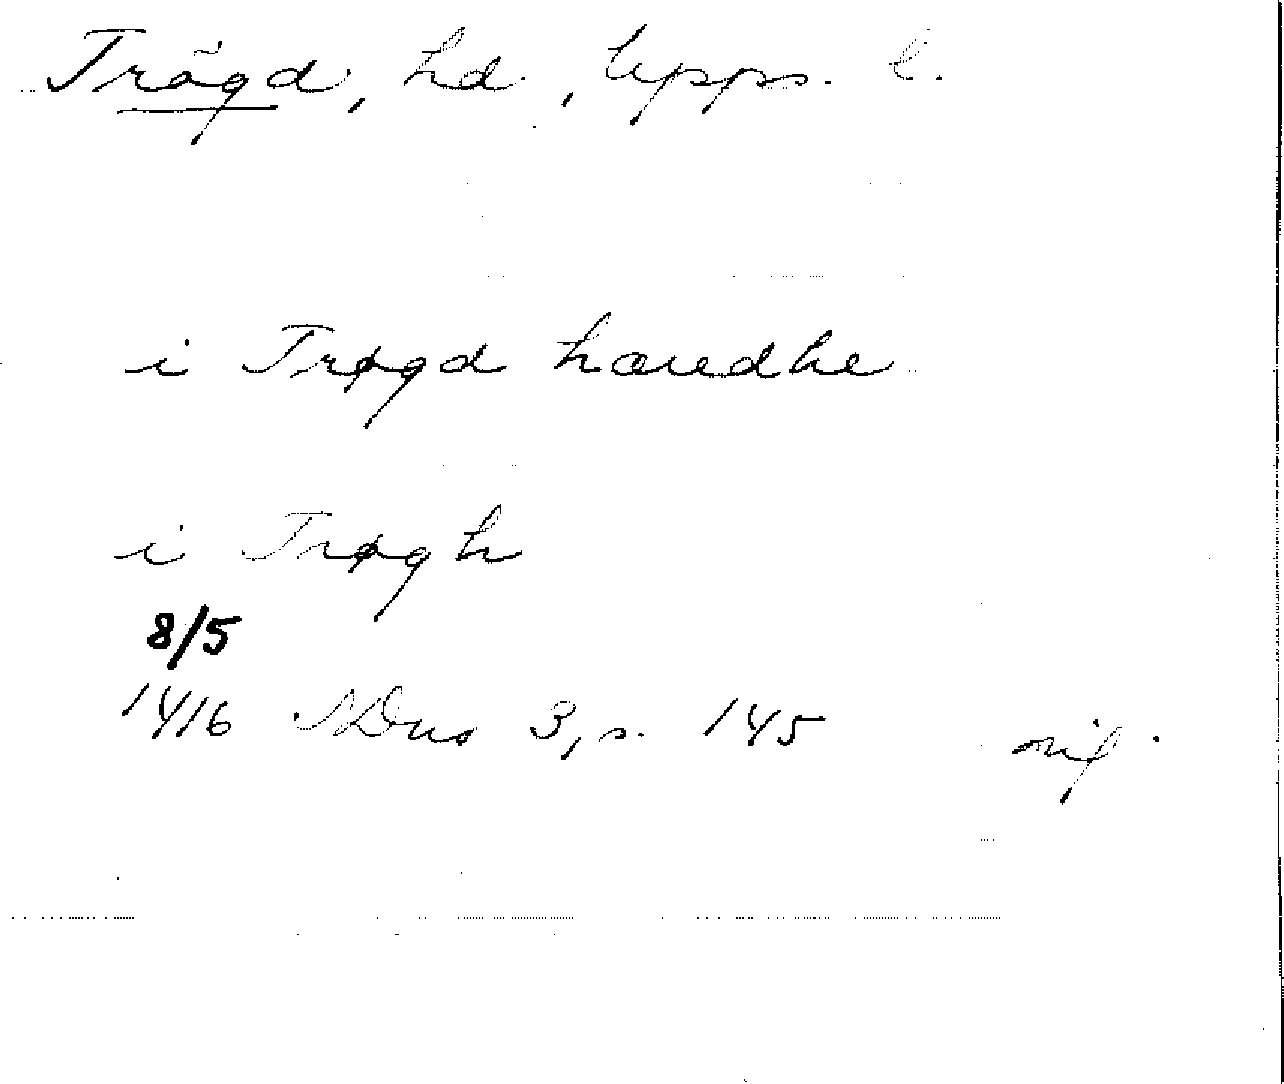 Trögd, hd., Upps. l.
i Trøgd hærædhe
i Trøgh
8/5
1416 SDns 3, s. 145 orig.